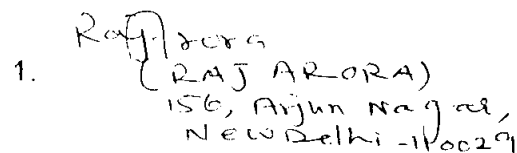 Raj Arora
1. (RAJ ARORA)
156, Arjun Nagar,
New Delhi - 110029